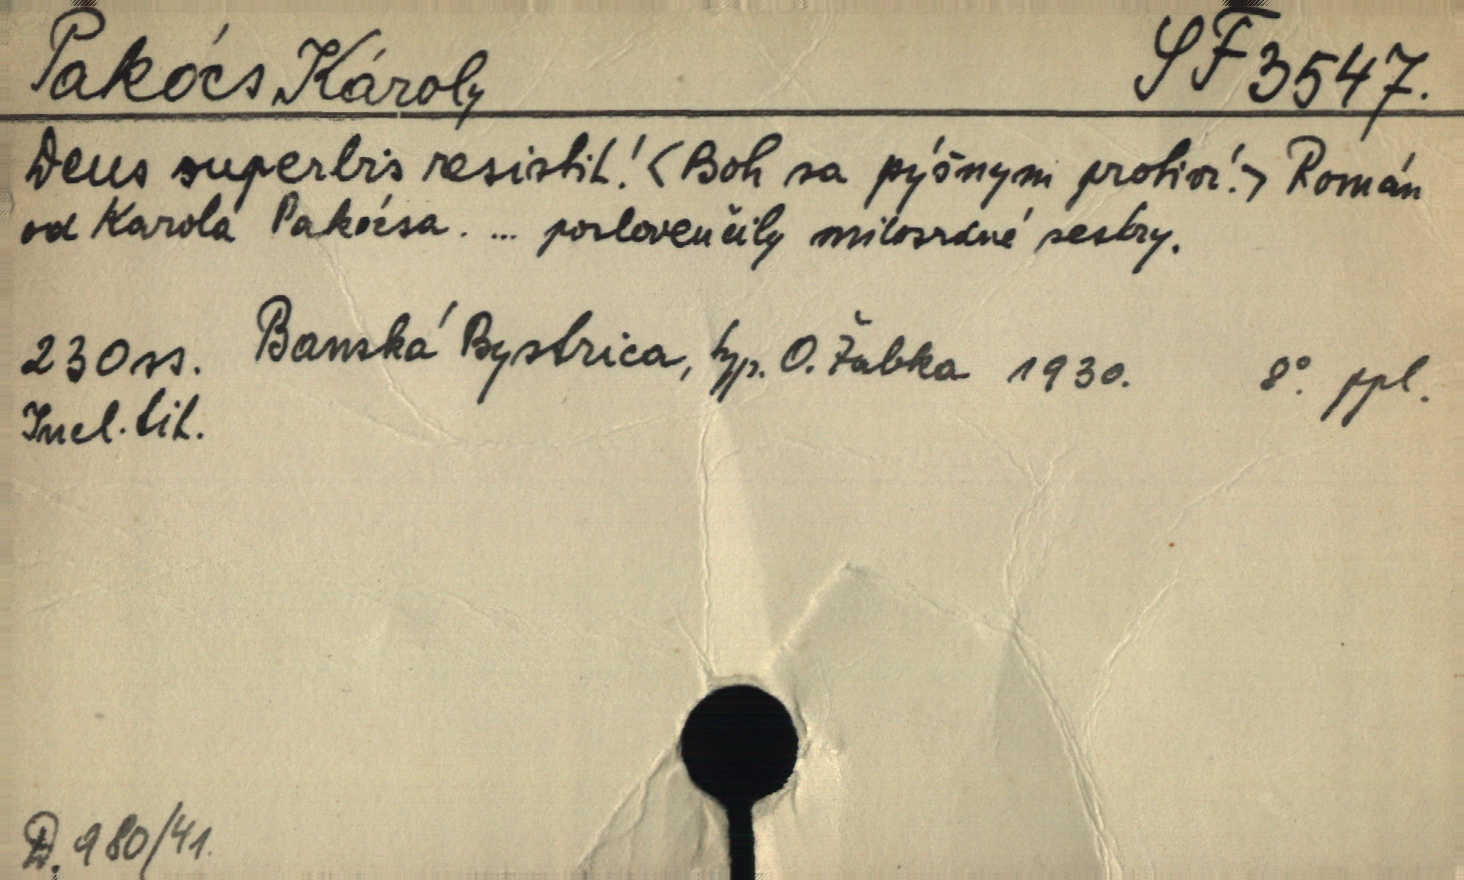 Pakócs Károly SF 3547.
Deus superbis resistit! <Boh sa pýšnym protiví!> Román
od Karola Pakócsa. ... poslovenčily milosrdné sestry.
230 ss. Banská Bystrica, typ. O. Žabka 1930. 8°. ppl.
Incl. tit.
D. 980/41.